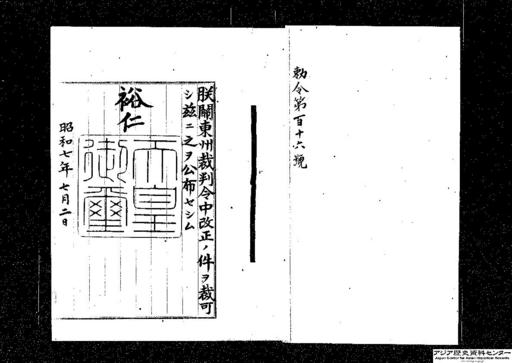 勅令第百十六號
朕關東州裁判令中改正ノ件ヲ裁可
シ玆ニ之ヲ公布セシム
裕仁
天皇
御璽
昭和七年七月二日
アジア歴史資料センター
Japan Center for Asian Historical Records